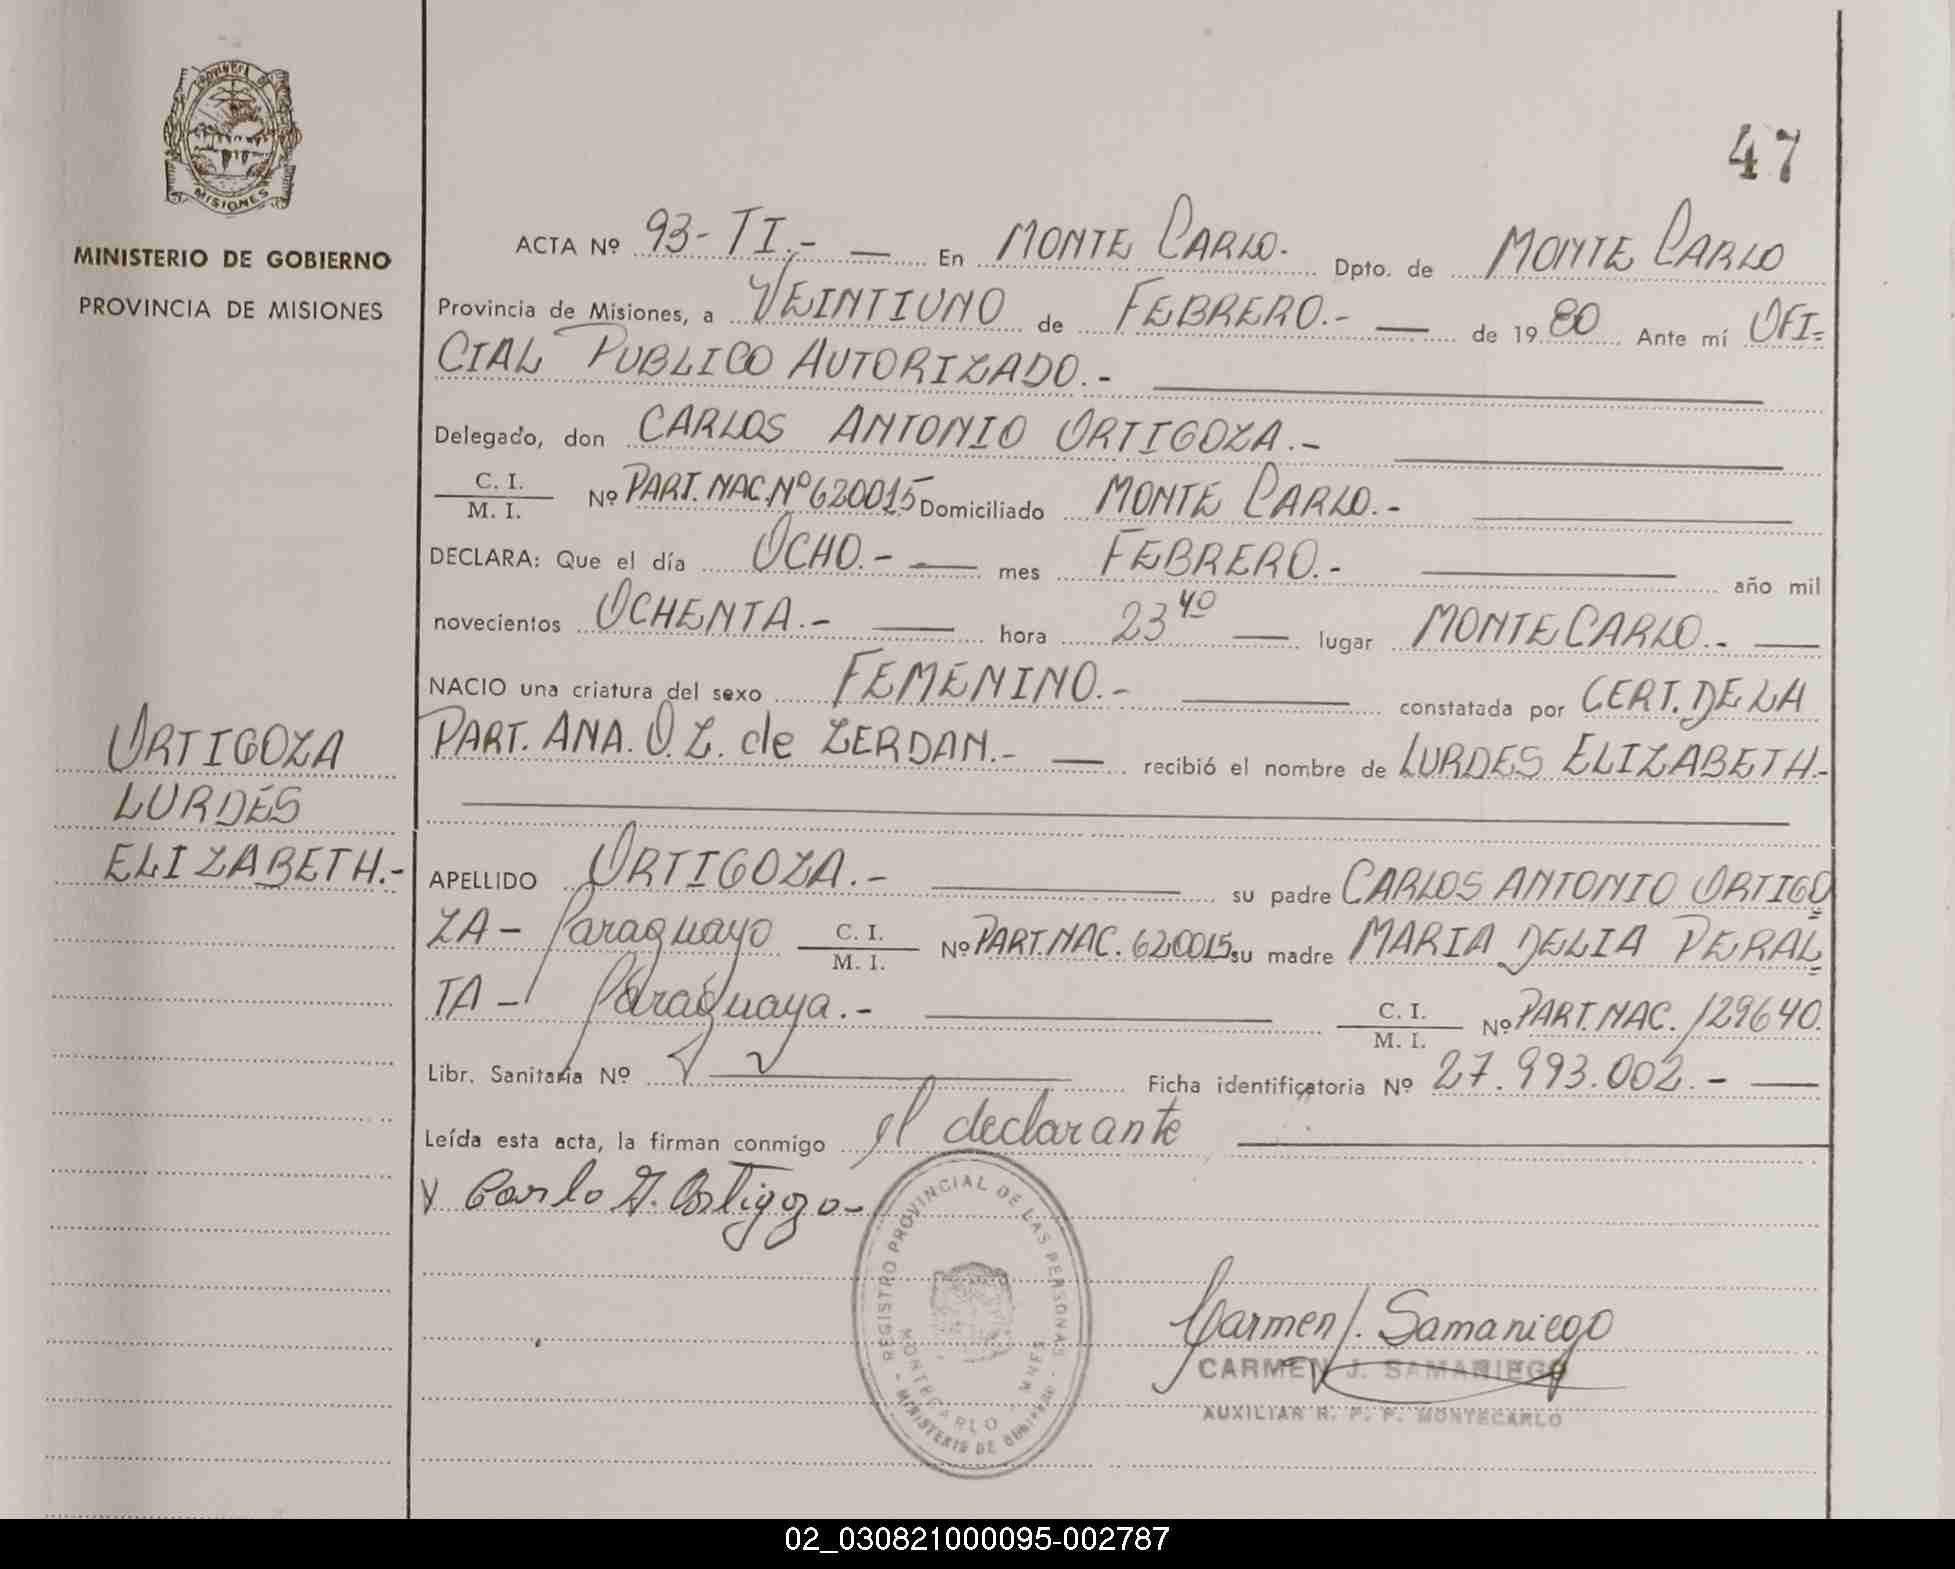 MISIONES
MINISTERIO DE GOBIERNO
PROVINCIA DE MISIONES
ORTIGOZA
LURDES
ELIZABETH.-
47
ACTA Nº 93-TI.- En MONTE CARLO.- Dpto. de MONTE CARLO
Provincia de Misiones, a VEINTIUNO de FEBRERO.- de 19 80 Ante mí OFI=
CIAL PUBLICO AUTORIZADO.-
Delegado, don CARLOS ANTONIO ORTIGOZA.-
C. I.
M. I. Nº PART. NAC. Nº 620015 Domiciliado MONTE CARLO.-
DECLARA: Que el día OCHO.- mes FEBRERO.- año mil
novecientos OCHENTA.- hora 23 40 lugar MONTECARLO.-
NACIO una criatura del sexo FEMENINO.- constatada por CERT. DE LA
PART. ANA. O. Z. de ZERDAN.- recibió el nombre de LURDES ELIZABETH.-
APELLIDO ORTIGOZA.- su padre CARLOS ANTONIO ORTIGO=
ZA - Paraguayo C. I. M. I. Nº PART. NAC. 620015 su madre MARIA DELIA PERAL=
TA - Paraguaya.- C. I. M. I. Nº PART. NAC. 129640.
Libr. Sanitaria Nº Ficha identificatoria Nº 27.993.002.-
Leída esta acta, la firman conmigo el declarante
y Carlo A. Ortigoza-
REGISTRO PROVINCIAL DE LAS PERSONAS
MONTECARLO - MNES
- MINISTERIO DE GOBIERNO -
Carmen J. Samaniego
CARMEN J. SAMANIEGO
AUXILIAR R. P. P. MONTECARLO
02_030821000095-002787